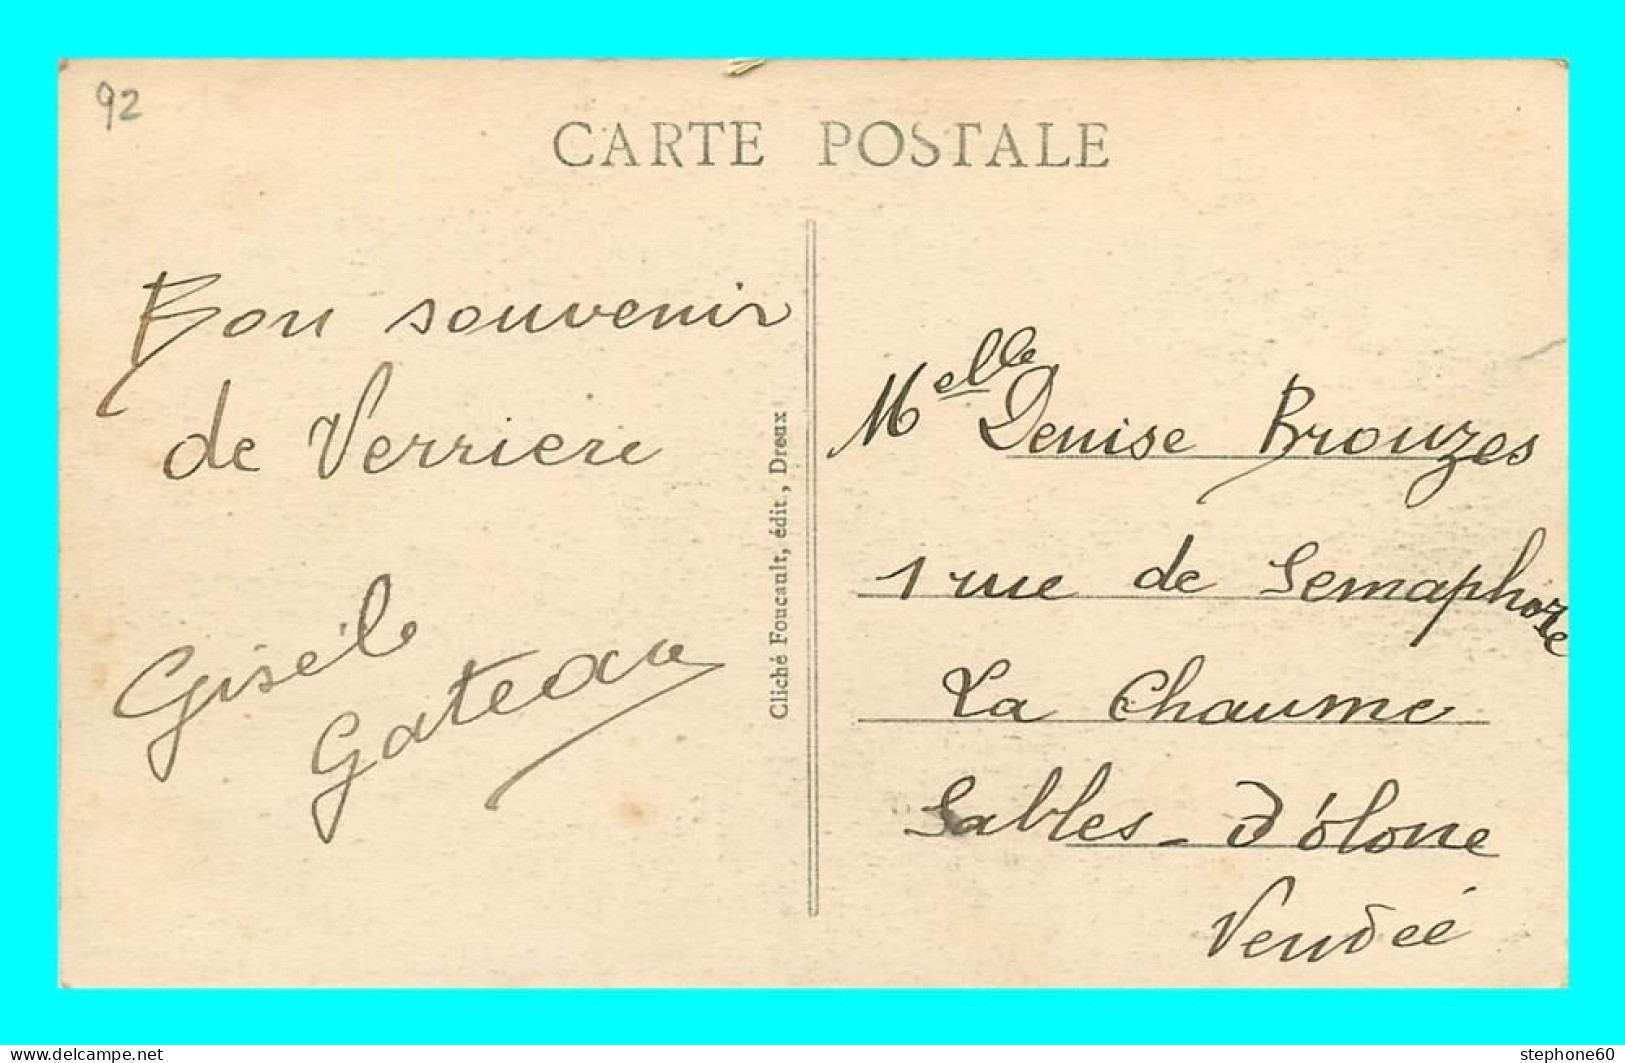 92
CARTE POSTALE
Bon souvenir
de Verriere
Gisèle
Gateau
Cliché Foucault, édit, Dreux
Melle Denise Brouzes
1 rue de Semaphore
La Chaume
Sables-d'olone
Vendée
www.delcampe.net
stephone60